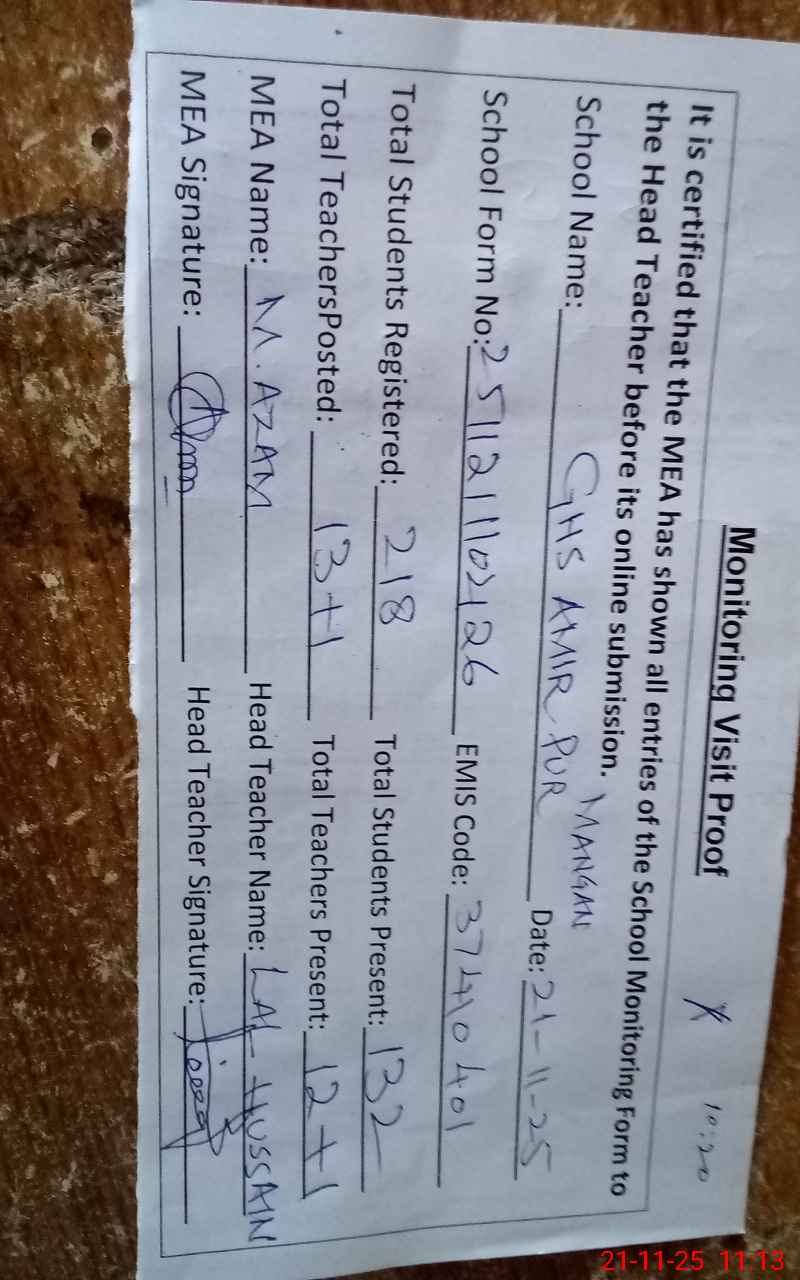 Monitoring Visit Proof
X 10:20
It is certified that the MEA has shown all entries of the School Monitoring Form to
the Head Teacher before its online submission.
School Name: GHS AMIR PUR MANGAN Date: 21-11-25
School Form No: 2511211102126 EMIS Code: 37410401
Total Students Registered: 218 Total Students Present: 132
Total TeachersPosted: 13+1 Total Teachers Present: 12+1
MEA Name: M. AZAM Head Teacher Name: LAL HUSSAIN
MEA Signature: Head Teacher Signature:
21-11-25 11:13